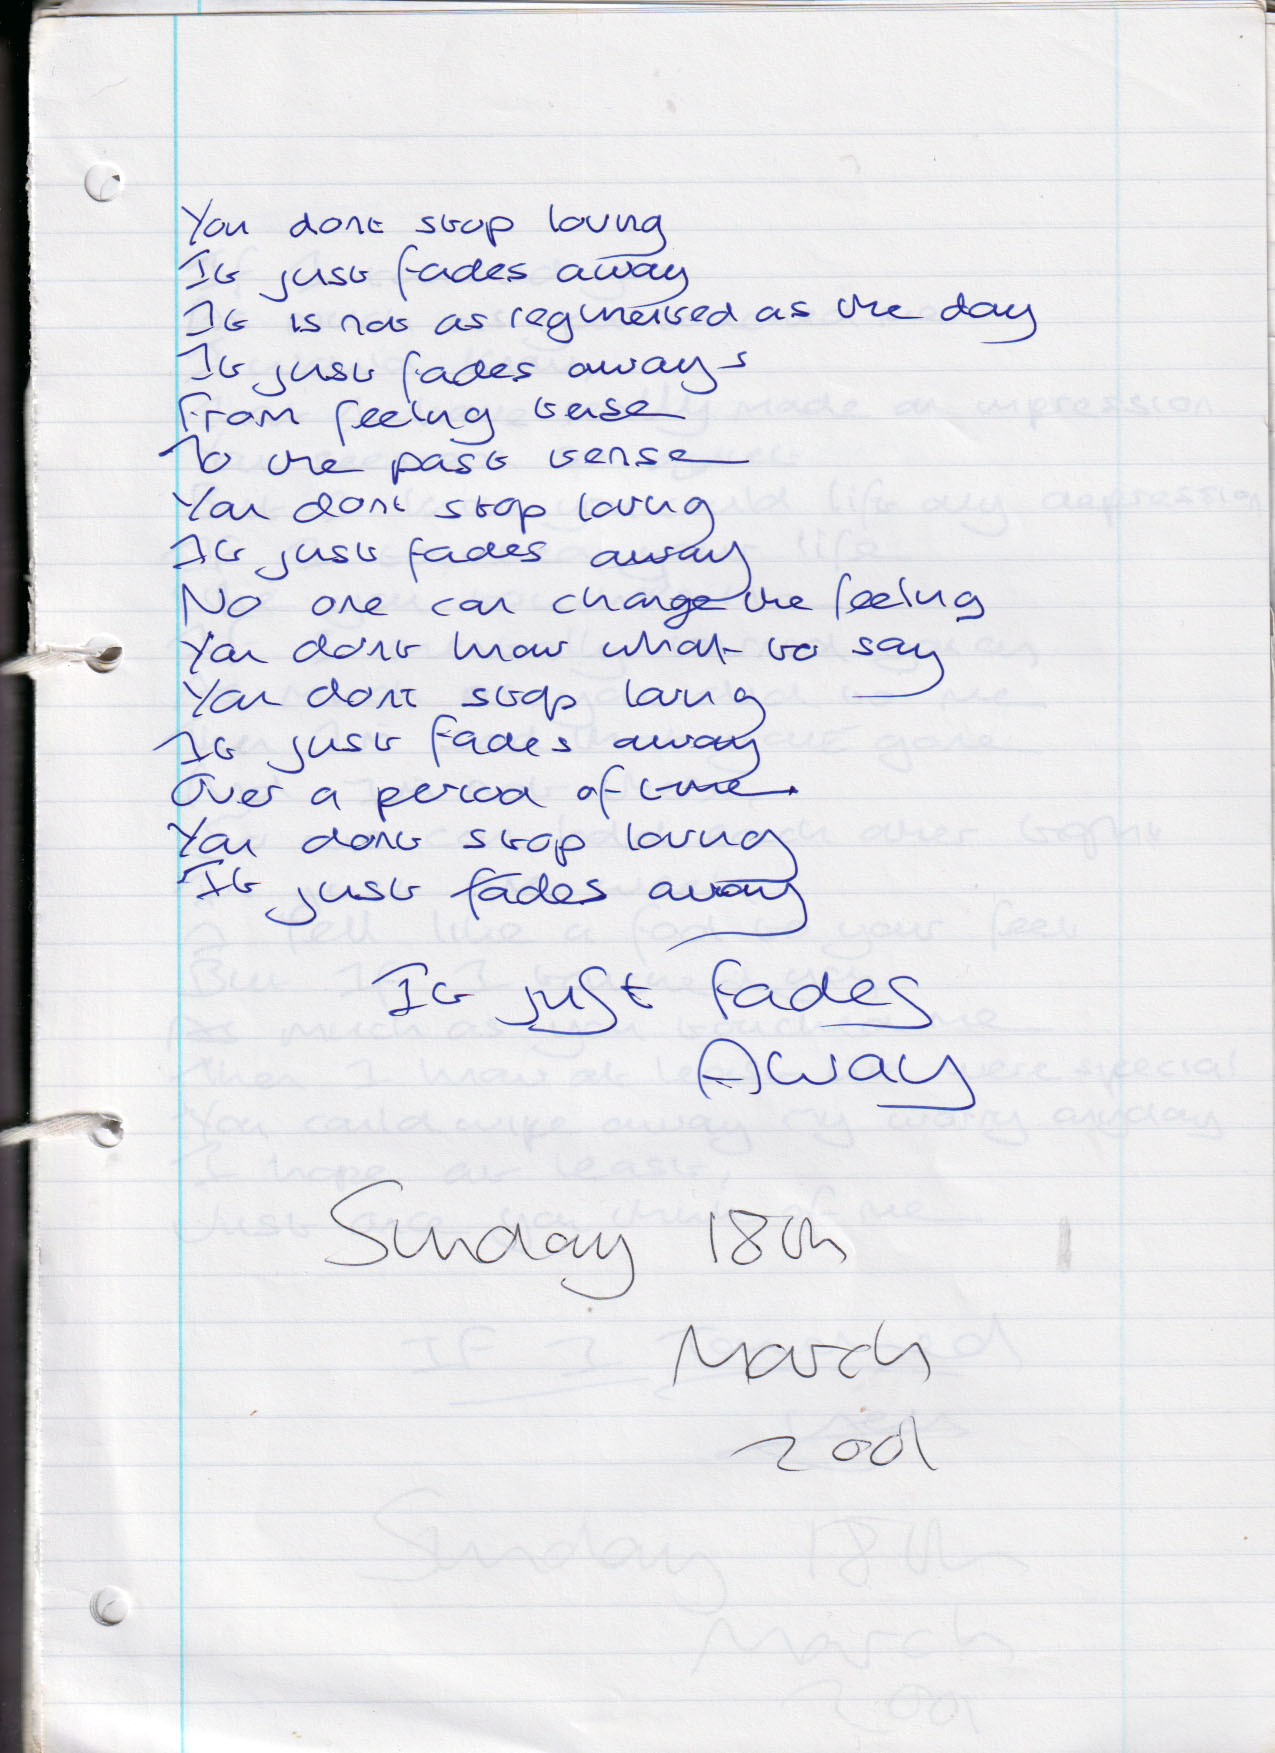 You dont stop loving
It just fades away
It is not as regimented as the day
It just fades aways
From feeling tense
To the past tense
You dont stop loving
It just fades away
No one can change the feeling
You dont know what to say
You dont stop loving
It just fades away
Over a period of time.
You dont stop loving
It just fades away
It just fades
Away
Sunday 18th
March
2001